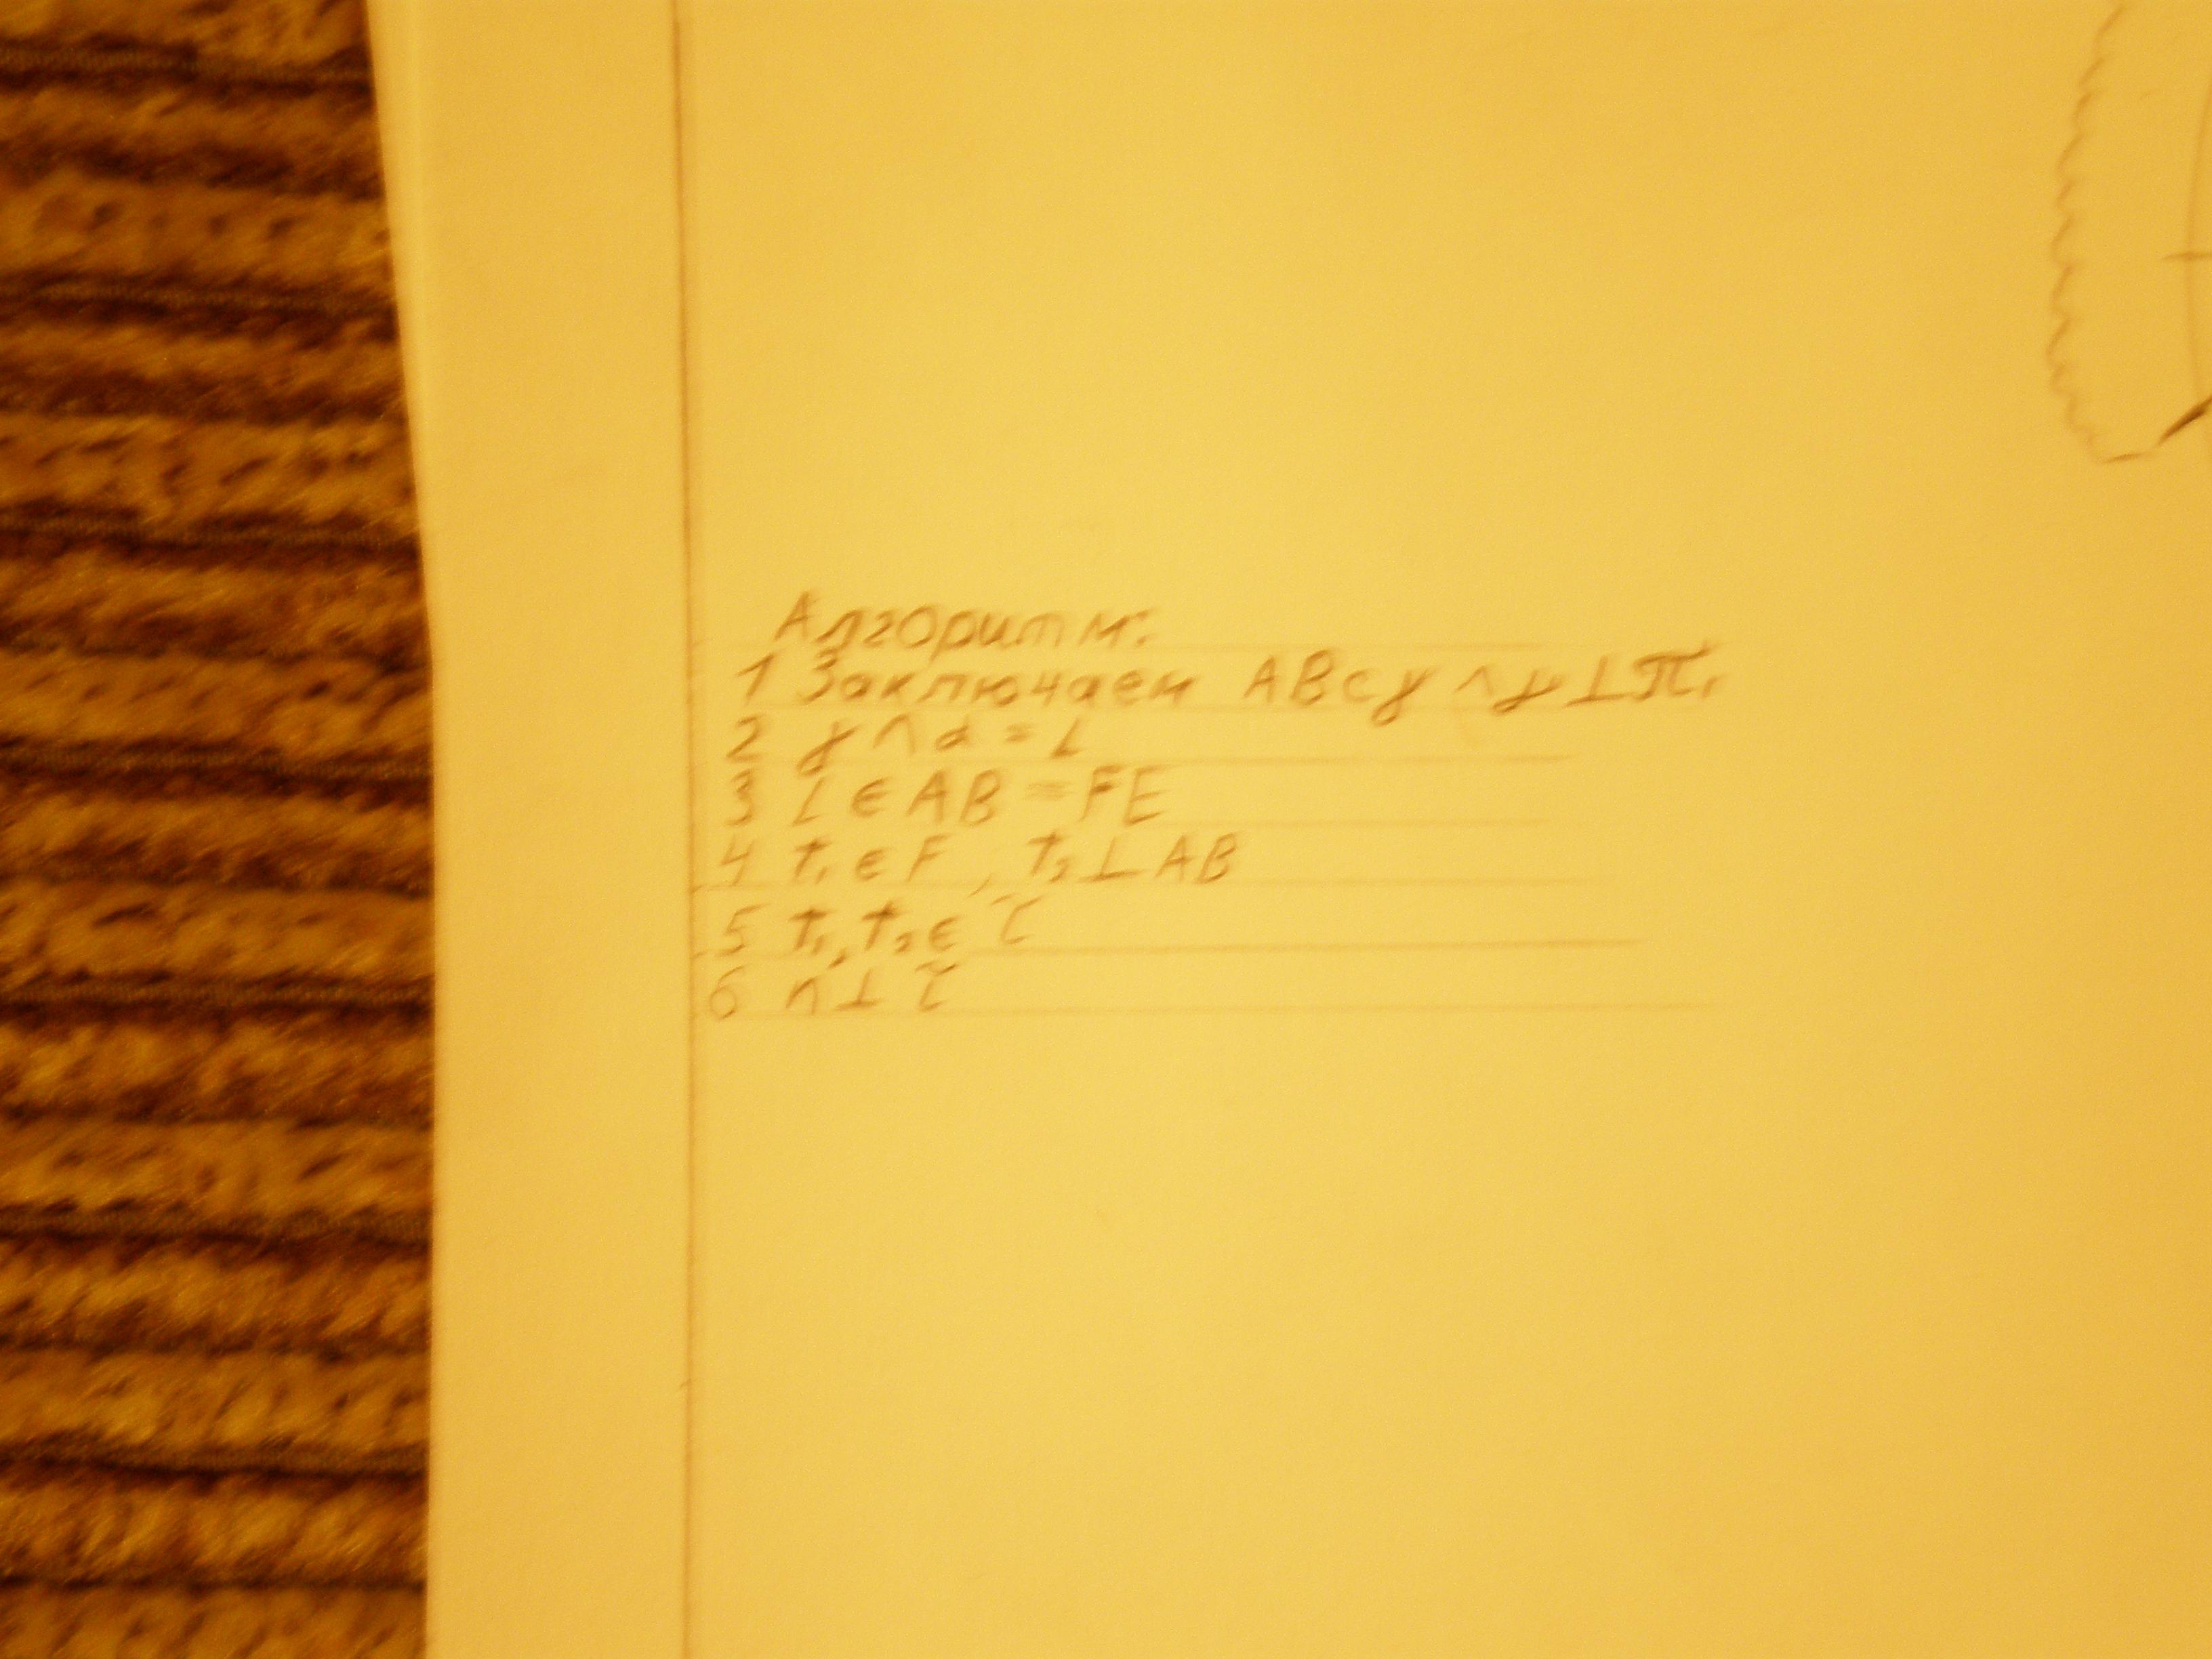 Алгоритм:
1 Заключаем AB⊂γ ∧ γ⊥π₁
2 γ∩α = L
3 L∈AB = FE
4 t₁∈F, t₂⊥AB
5 t₁, t₂∈τ
6 n⊥τ